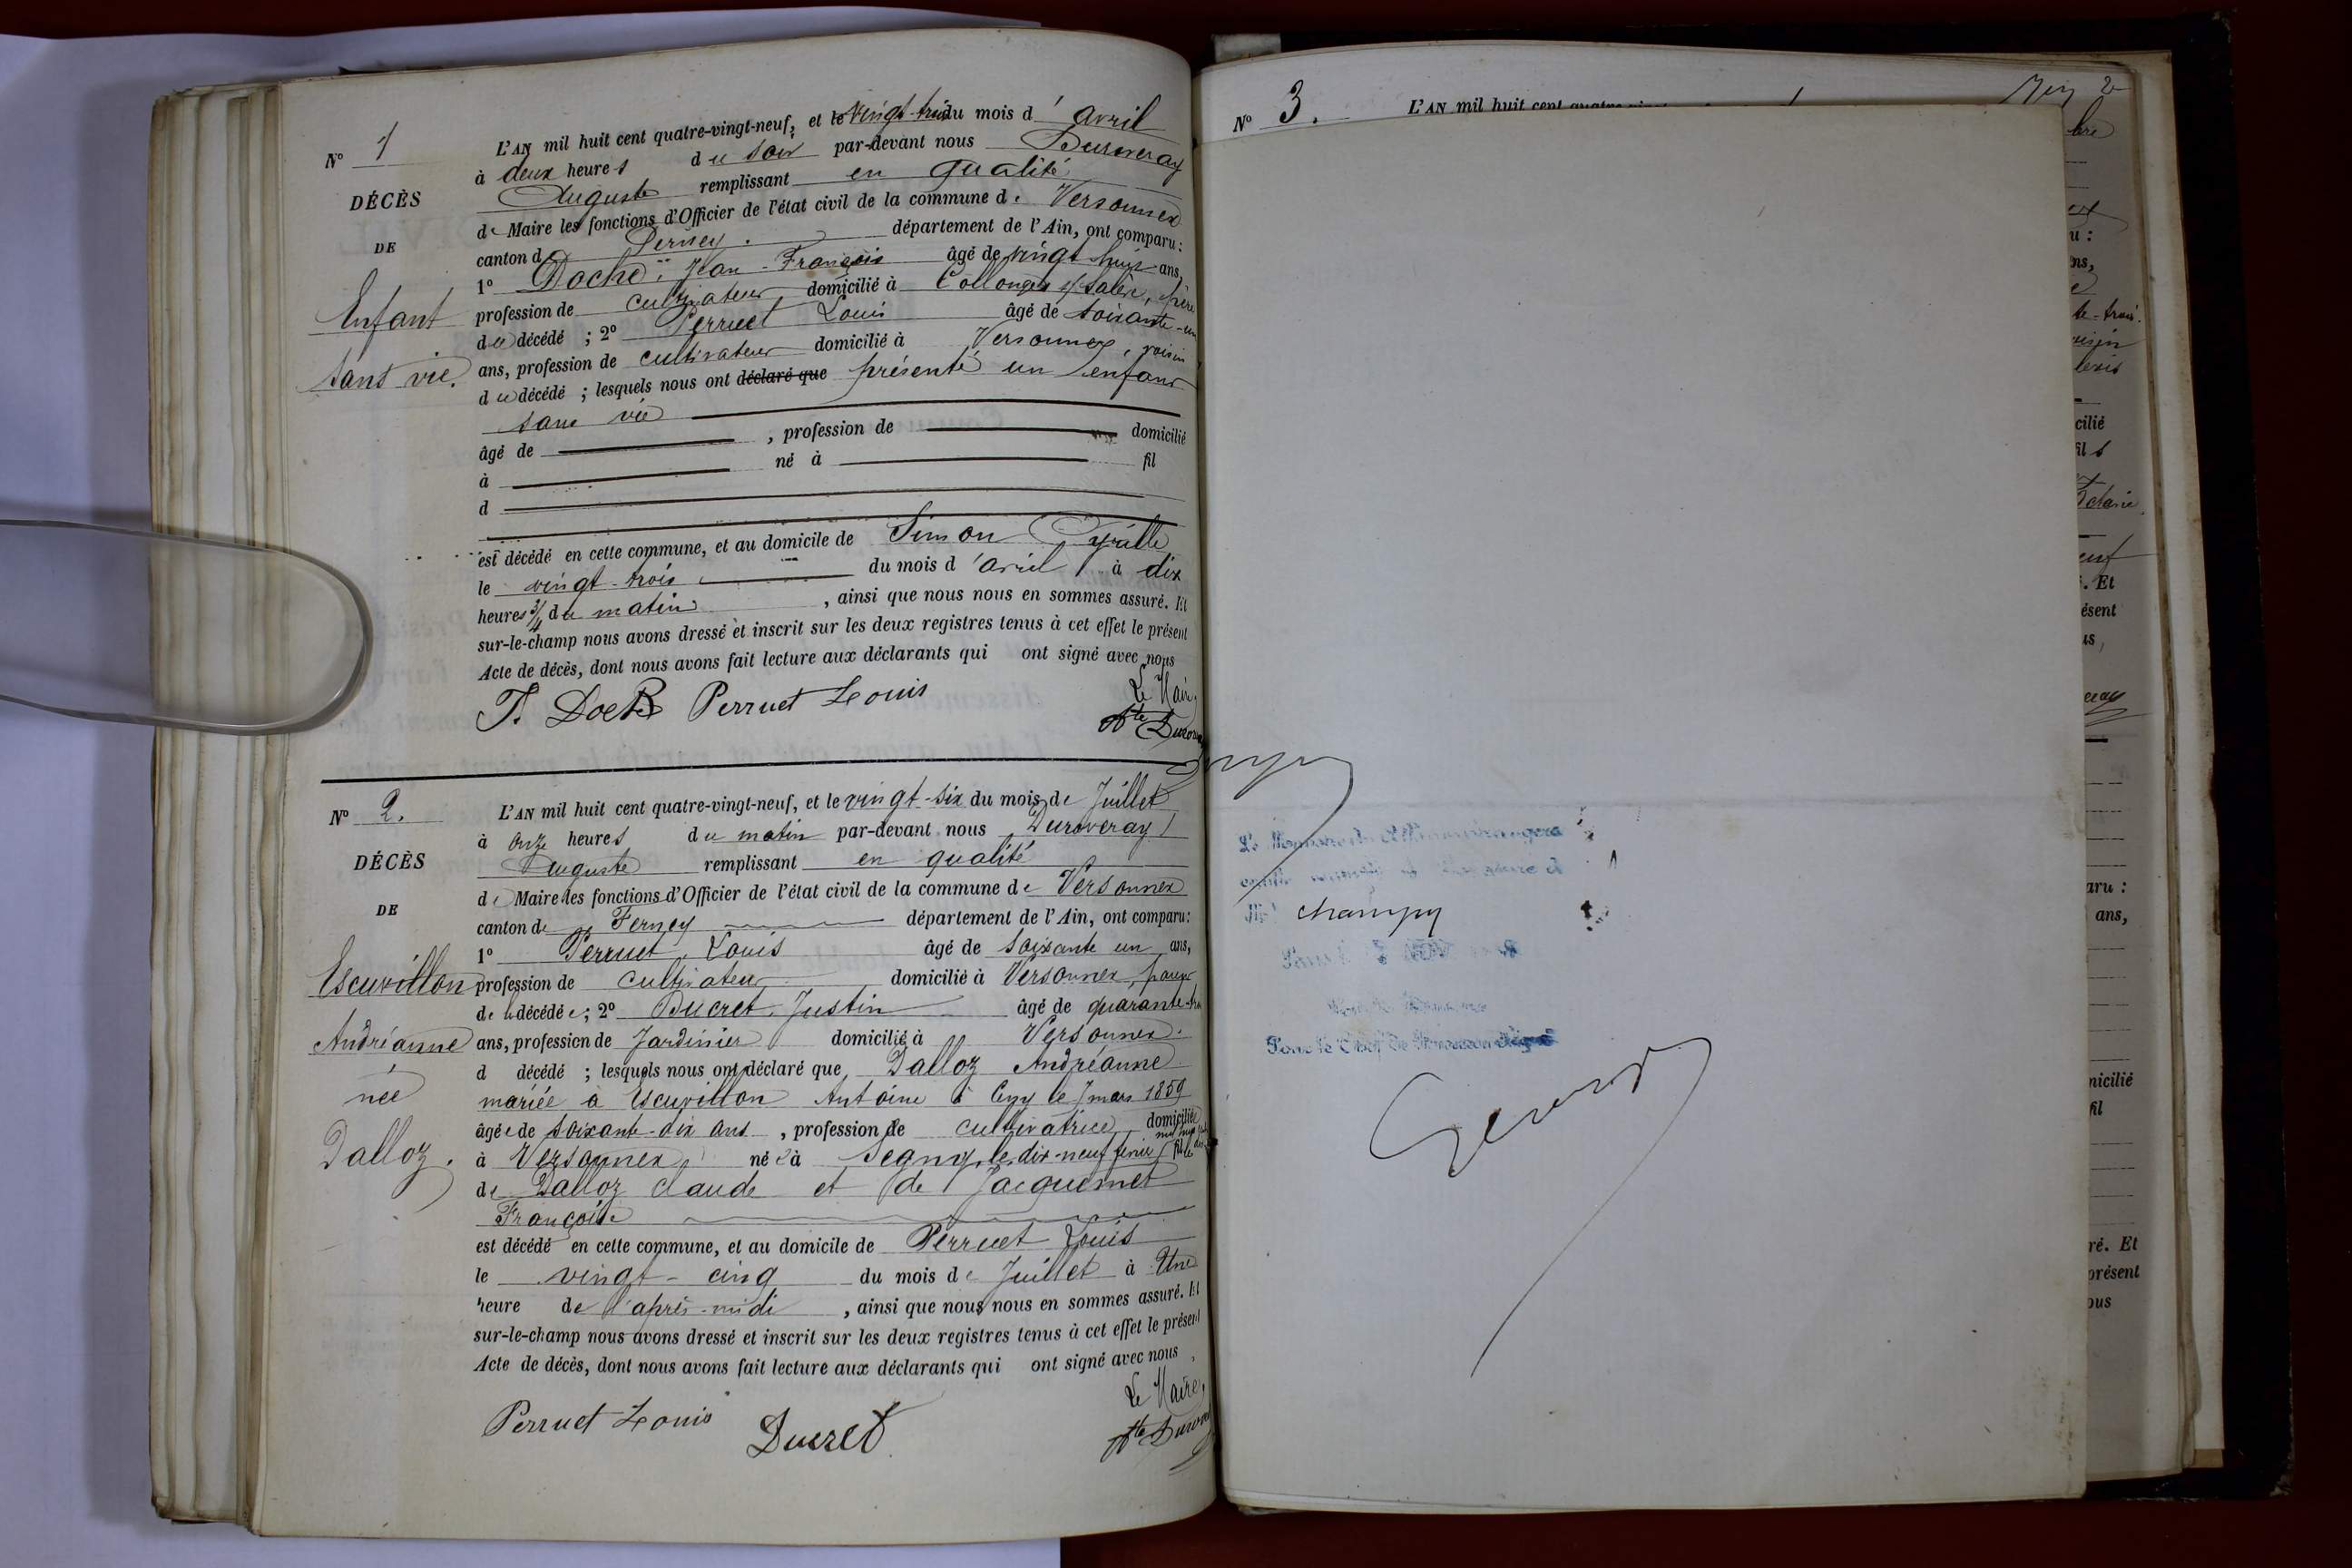 N° 1
DÉCÈS
DE
Enfant
sans vie.
L'AN mil huit cent quatre-vingt-neuf, et le vingt-trois du mois d'avril
à deux heures du soir par-devant nous Duroveray
Auguste remplissant en qualité
de Maire les fonctions d'Officier de l'état civil de la commune de Versonnex
canton d Ferney département de l'Ain, ont comparu :
1° Jean-François âgé de vingt huit ans,
profession de cultivateur domicilié à Collonges s/ Salève, père
du décédé ; 2° Perruet Louis âgé de soixante-un
ans, profession de cultivateur domicilié à Versonnex, voisin
du décédé ; lesquels nous ont déclaré que présenté un enfant
sans vie
âgé de , profession de domicilié
à né à fil
d
est décédé en cette commune, et au domicile de Simon Cyrille
le vingt-trois du mois d'avril à dix
heures 3/4 du matin , ainsi que nous nous en sommes assuré. Et
sur-le-champ nous avons dressé et inscrit sur les deux registres tenus à cet effet le présent
Acte de décès, dont nous avons fait lecture aux déclarants qui ont signé avec nous
Perruet Louis
Le Maire,
Ate Duroveray
N° 2.
DÉCÈS
DE
Escuvillon
Andréanne
née
Dalloz.
L'AN mil huit cent quatre-vingt-neuf, et le vingt-six du mois de Juillet
à onze heures du matin par-devant nous Duroveray
Auguste remplissant en qualité
de Maire les fonctions d'Officier de l'état civil de la commune de Versonnex
canton de Ferney département de l'Ain, ont comparu :
1° Perruet Louis âgé de soixante un ans,
profession de cultivateur domicilié à Versonnex,
de la décédée ; 2° Ducret Justin âgé de quarante-
ans, profession de Jardinier domicilié à Versonnex.
d décédé ; lesquels nous ont déclaré que Dalloz Andréanne
mariée à Escuvillon Antoine à le 7 mars 1859
âgée de soixante-dix ans , profession de cultivatrice domiciliée
à Versonnex née à Segny, le dix-neuf février fille
de Dalloz claude et de Jacquemet
Françoise
est décédé en cette commune, et au domicile de Perruet Louis
le vingt-cinq du mois de Juillet à Une
heure de l'après-midi , ainsi que nous nous en sommes assuré. Et
sur-le-champ nous avons dressé et inscrit sur les deux registres tenus à cet effet le présent
Acte de décès, dont nous avons fait lecture aux déclarants qui ont signé avec nous,
Perruet Louis Ducret
Le Maire,
Ate Duroveray
N° 3. L'AN mil huit cent
Champy